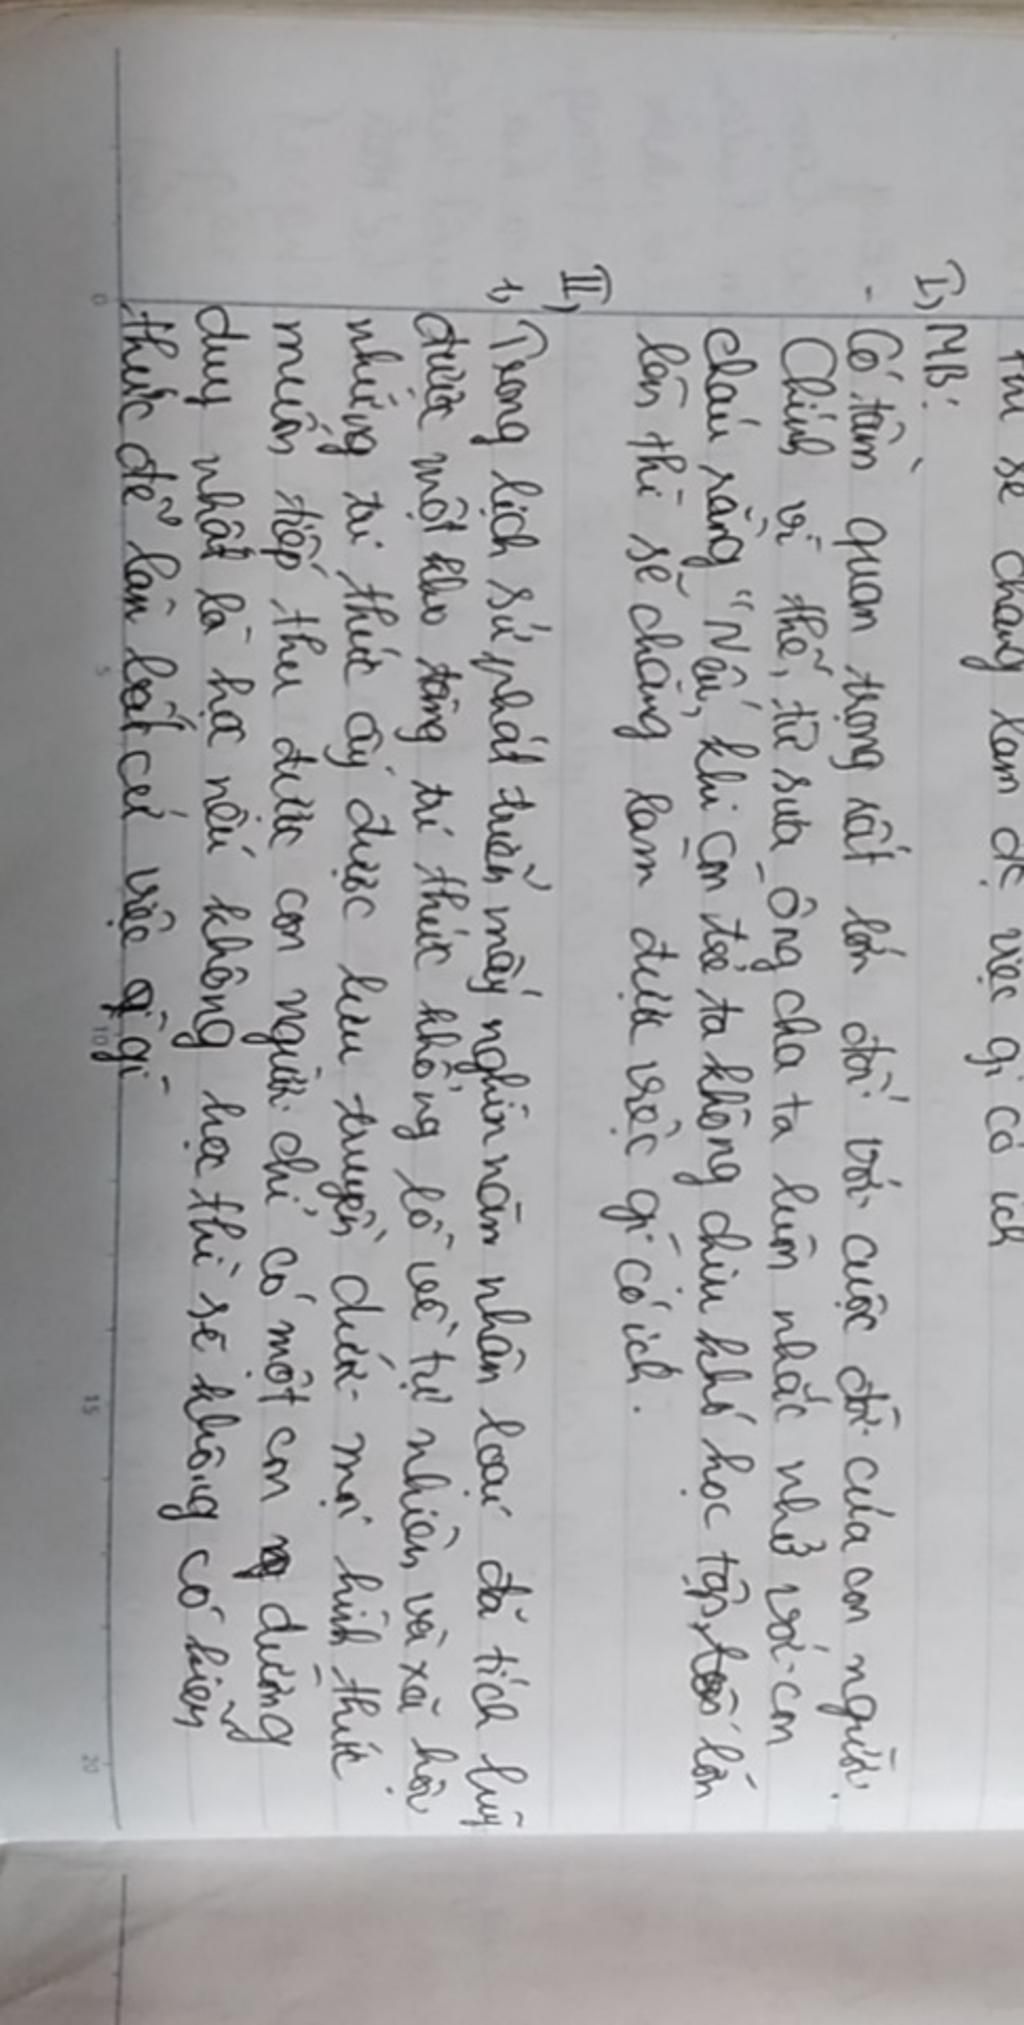 thì sẽ chẳng làm đc việc gì có ích
I, MB:
- Có tầm quan trọng rất lớn đối với cuộc đời của con người.
Chính vì thế, từ xưa ông cha ta luôn nhắc nhở với con
cháu rằng "Nếu khi còn trẻ ta không chịu khó học tập, lớn
lên thì sẽ chẳng làm được việc gì có ích.
II,
1, Trong lịch sử phát triển mấy nghìn năm nhân loại đã tích luỹ
được một kho tàng tri thức khổng lồ về tự nhiên và xã hội
những tri thức ấy được lưu truyền dưới mọi hình thức
muốn tiếp thu được con người chỉ có một con đường
duy nhất là học nếu không học thì sẽ không có kiến
thức để làm bất cứ việc gì
0 5 10 15 20